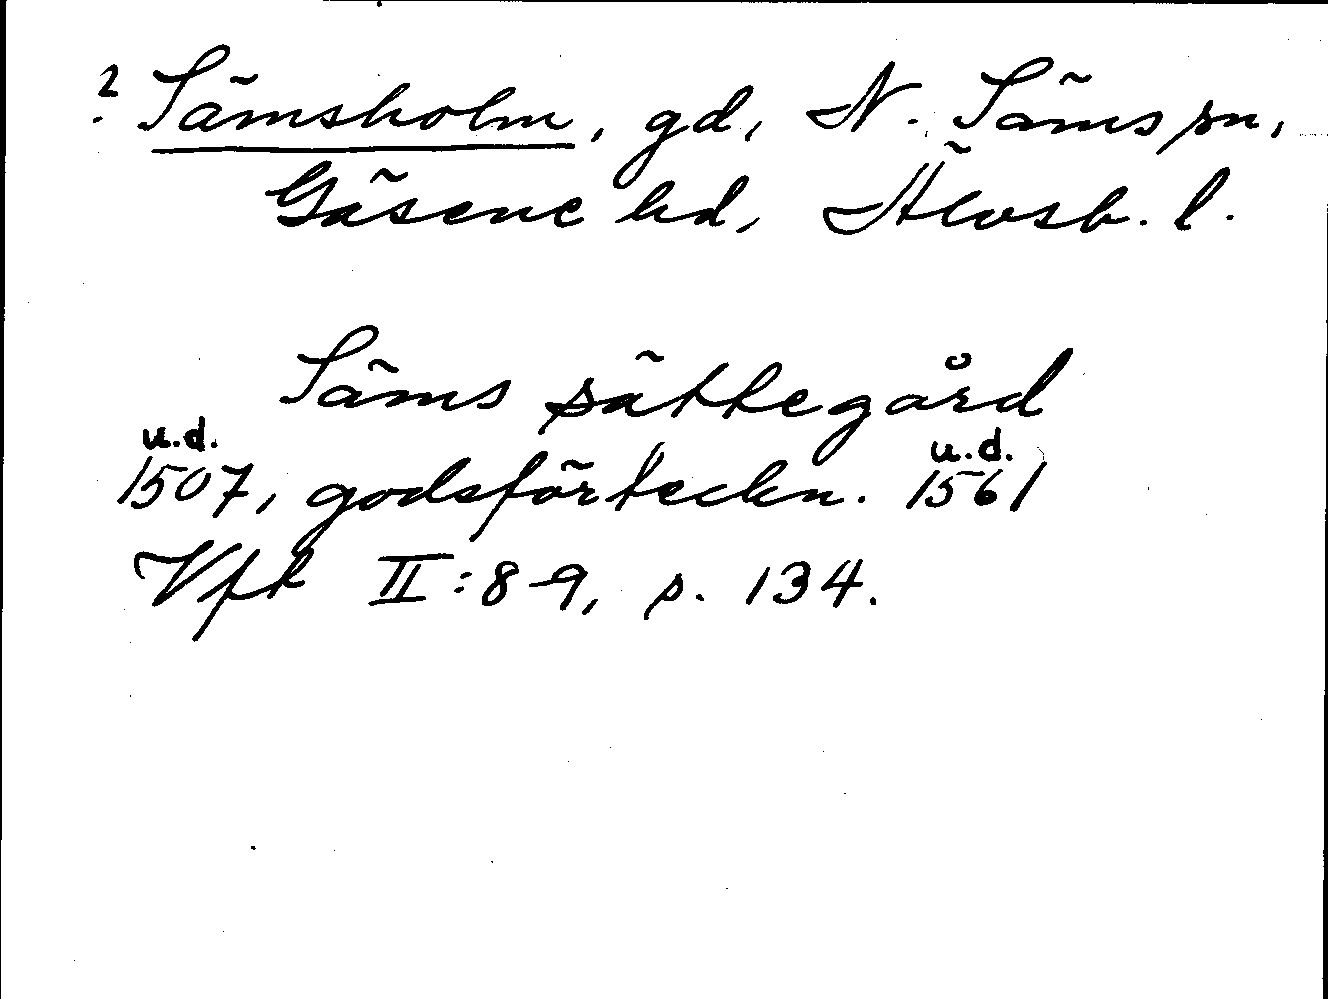 ? Sämsholm, gd, N. Säms sn,
Gäsene hd, Älvsb. l.
Säms sättegård
u.d. u.d.
1507, godsförteckn. 1561
Vft II:8-9, s. 134.